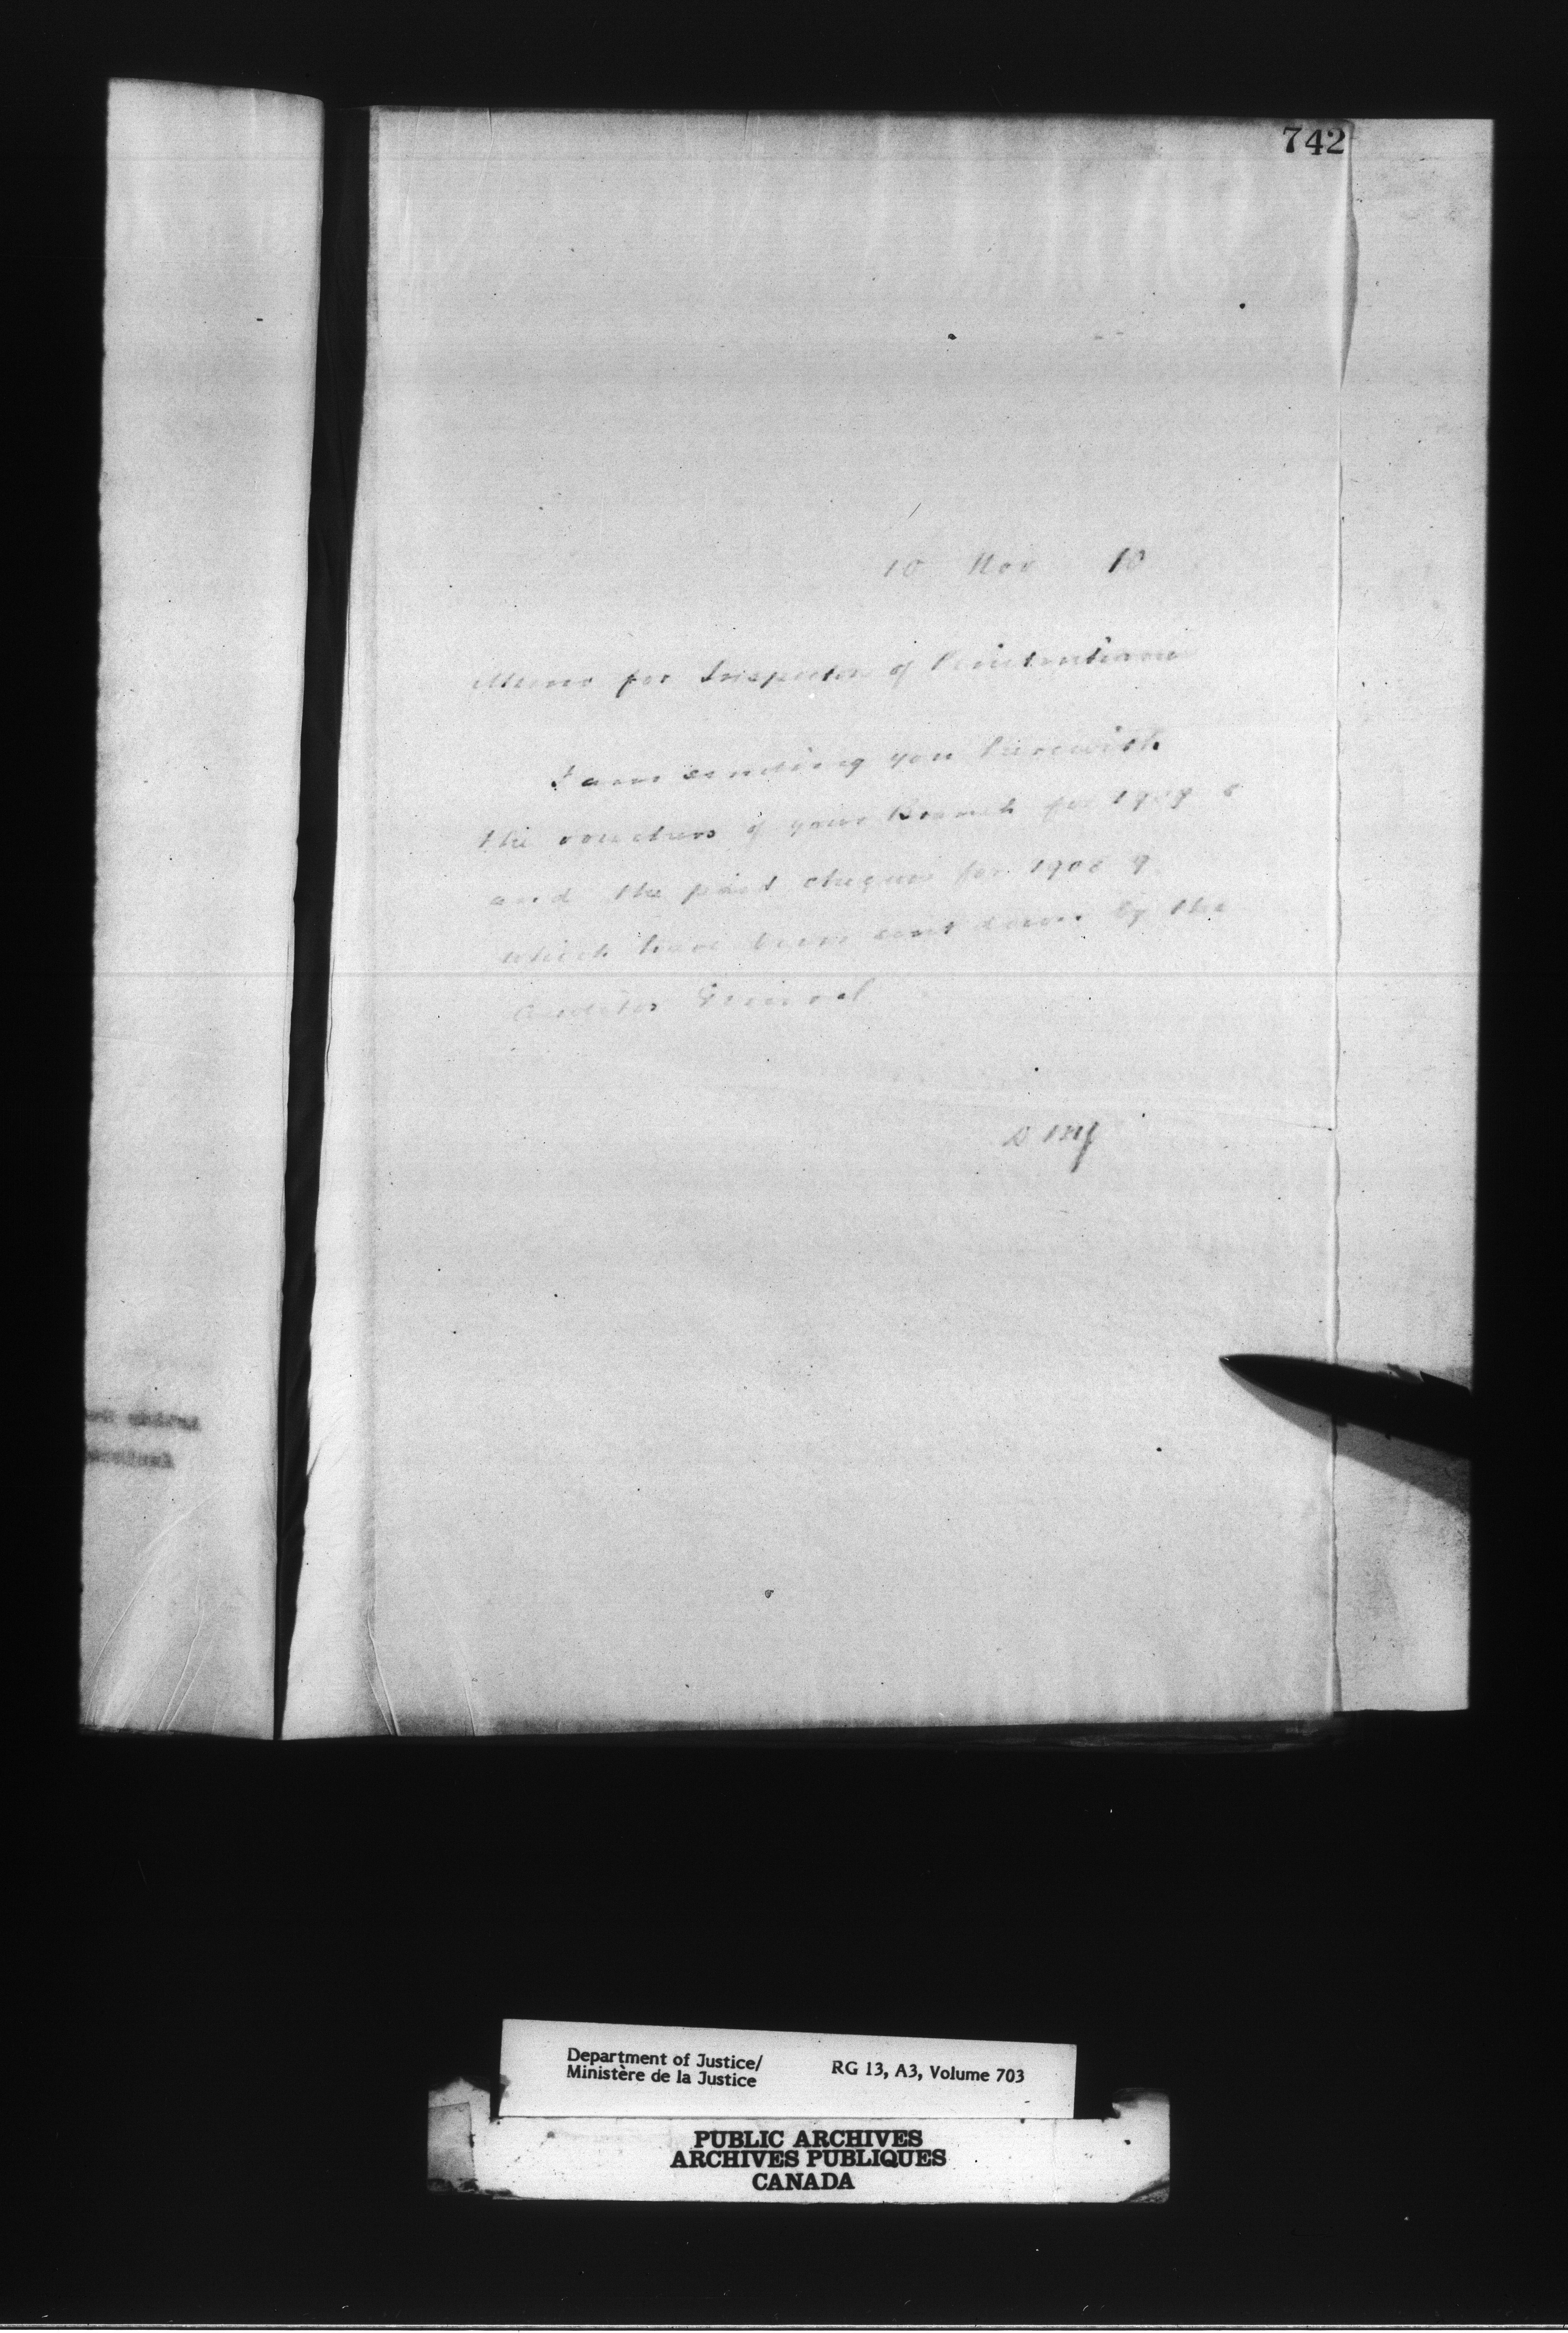 742
10 Nov 10
Memo for Inspector of Penitentiaries
I am sending you herewith
the vouchers of your Branch for
and the paid cheques for 1908 9
which have been sent down by the
Auditor General
Department of Justice/
Ministère de la Justice
RG 13, A3, Volume 703
PUBLIC ARCHIVES
ARCHIVES PUBLIQUES
CANADA